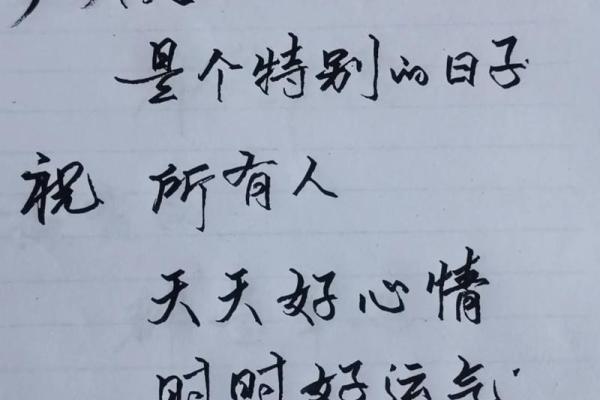 是个特别的日子
祝 所有人
天天好心情
时时好运气